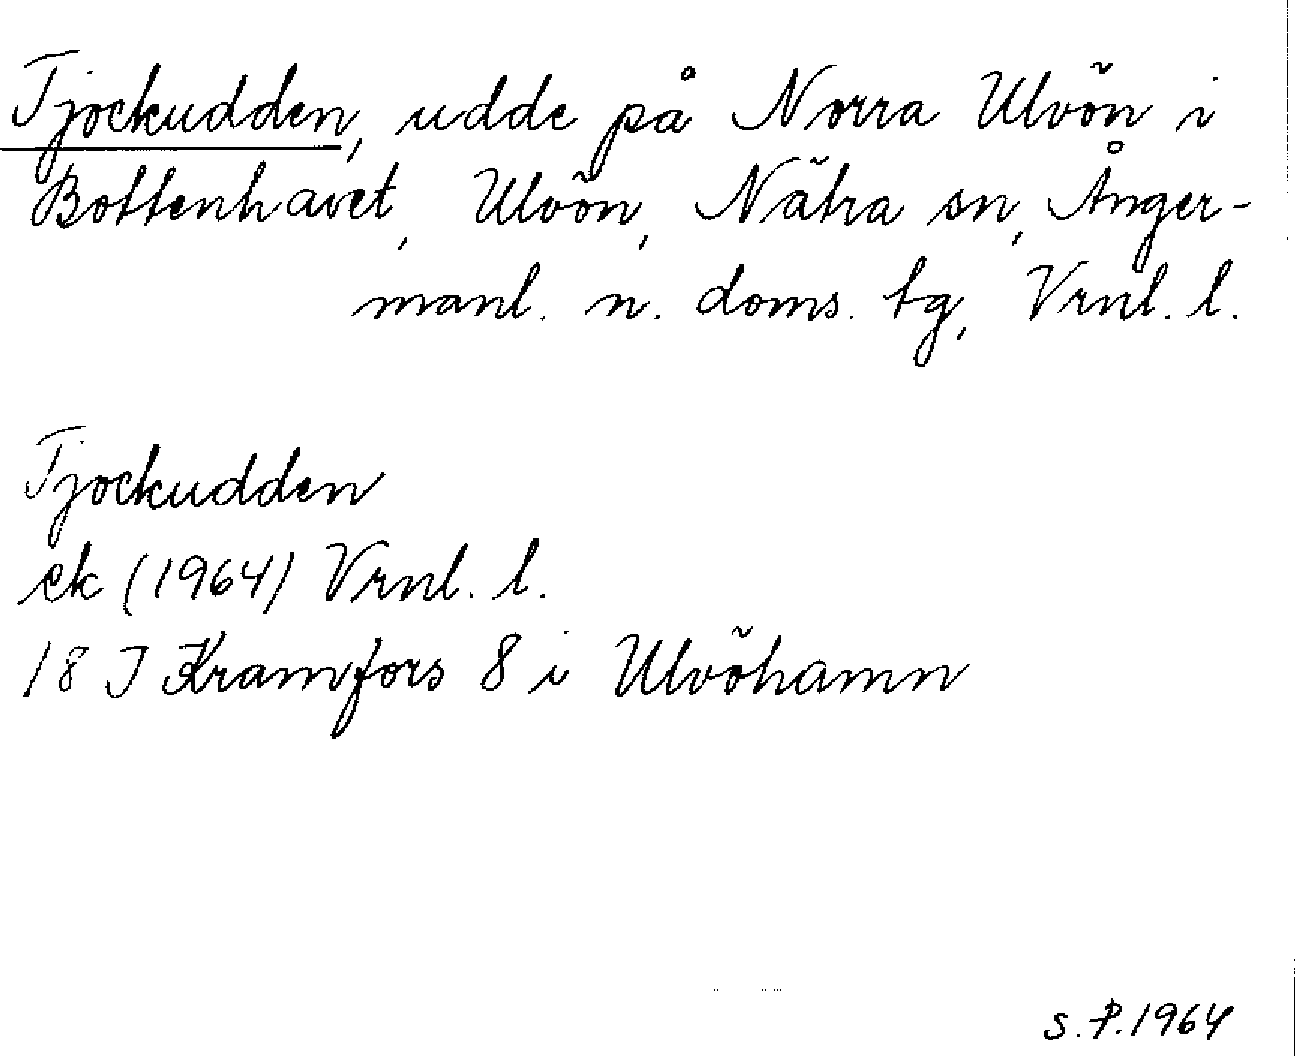 Tjockudden, udde på Norra Ulvön i
Bottenhavet, Ulvön, Nätra sn, Ånger-
manl. n. doms. tg, Vrnl. l.
Tjockudden
ek (1964) Vrnl. l.
18 J Kramfors 8 i Ulvöhamn
S.P. 1964